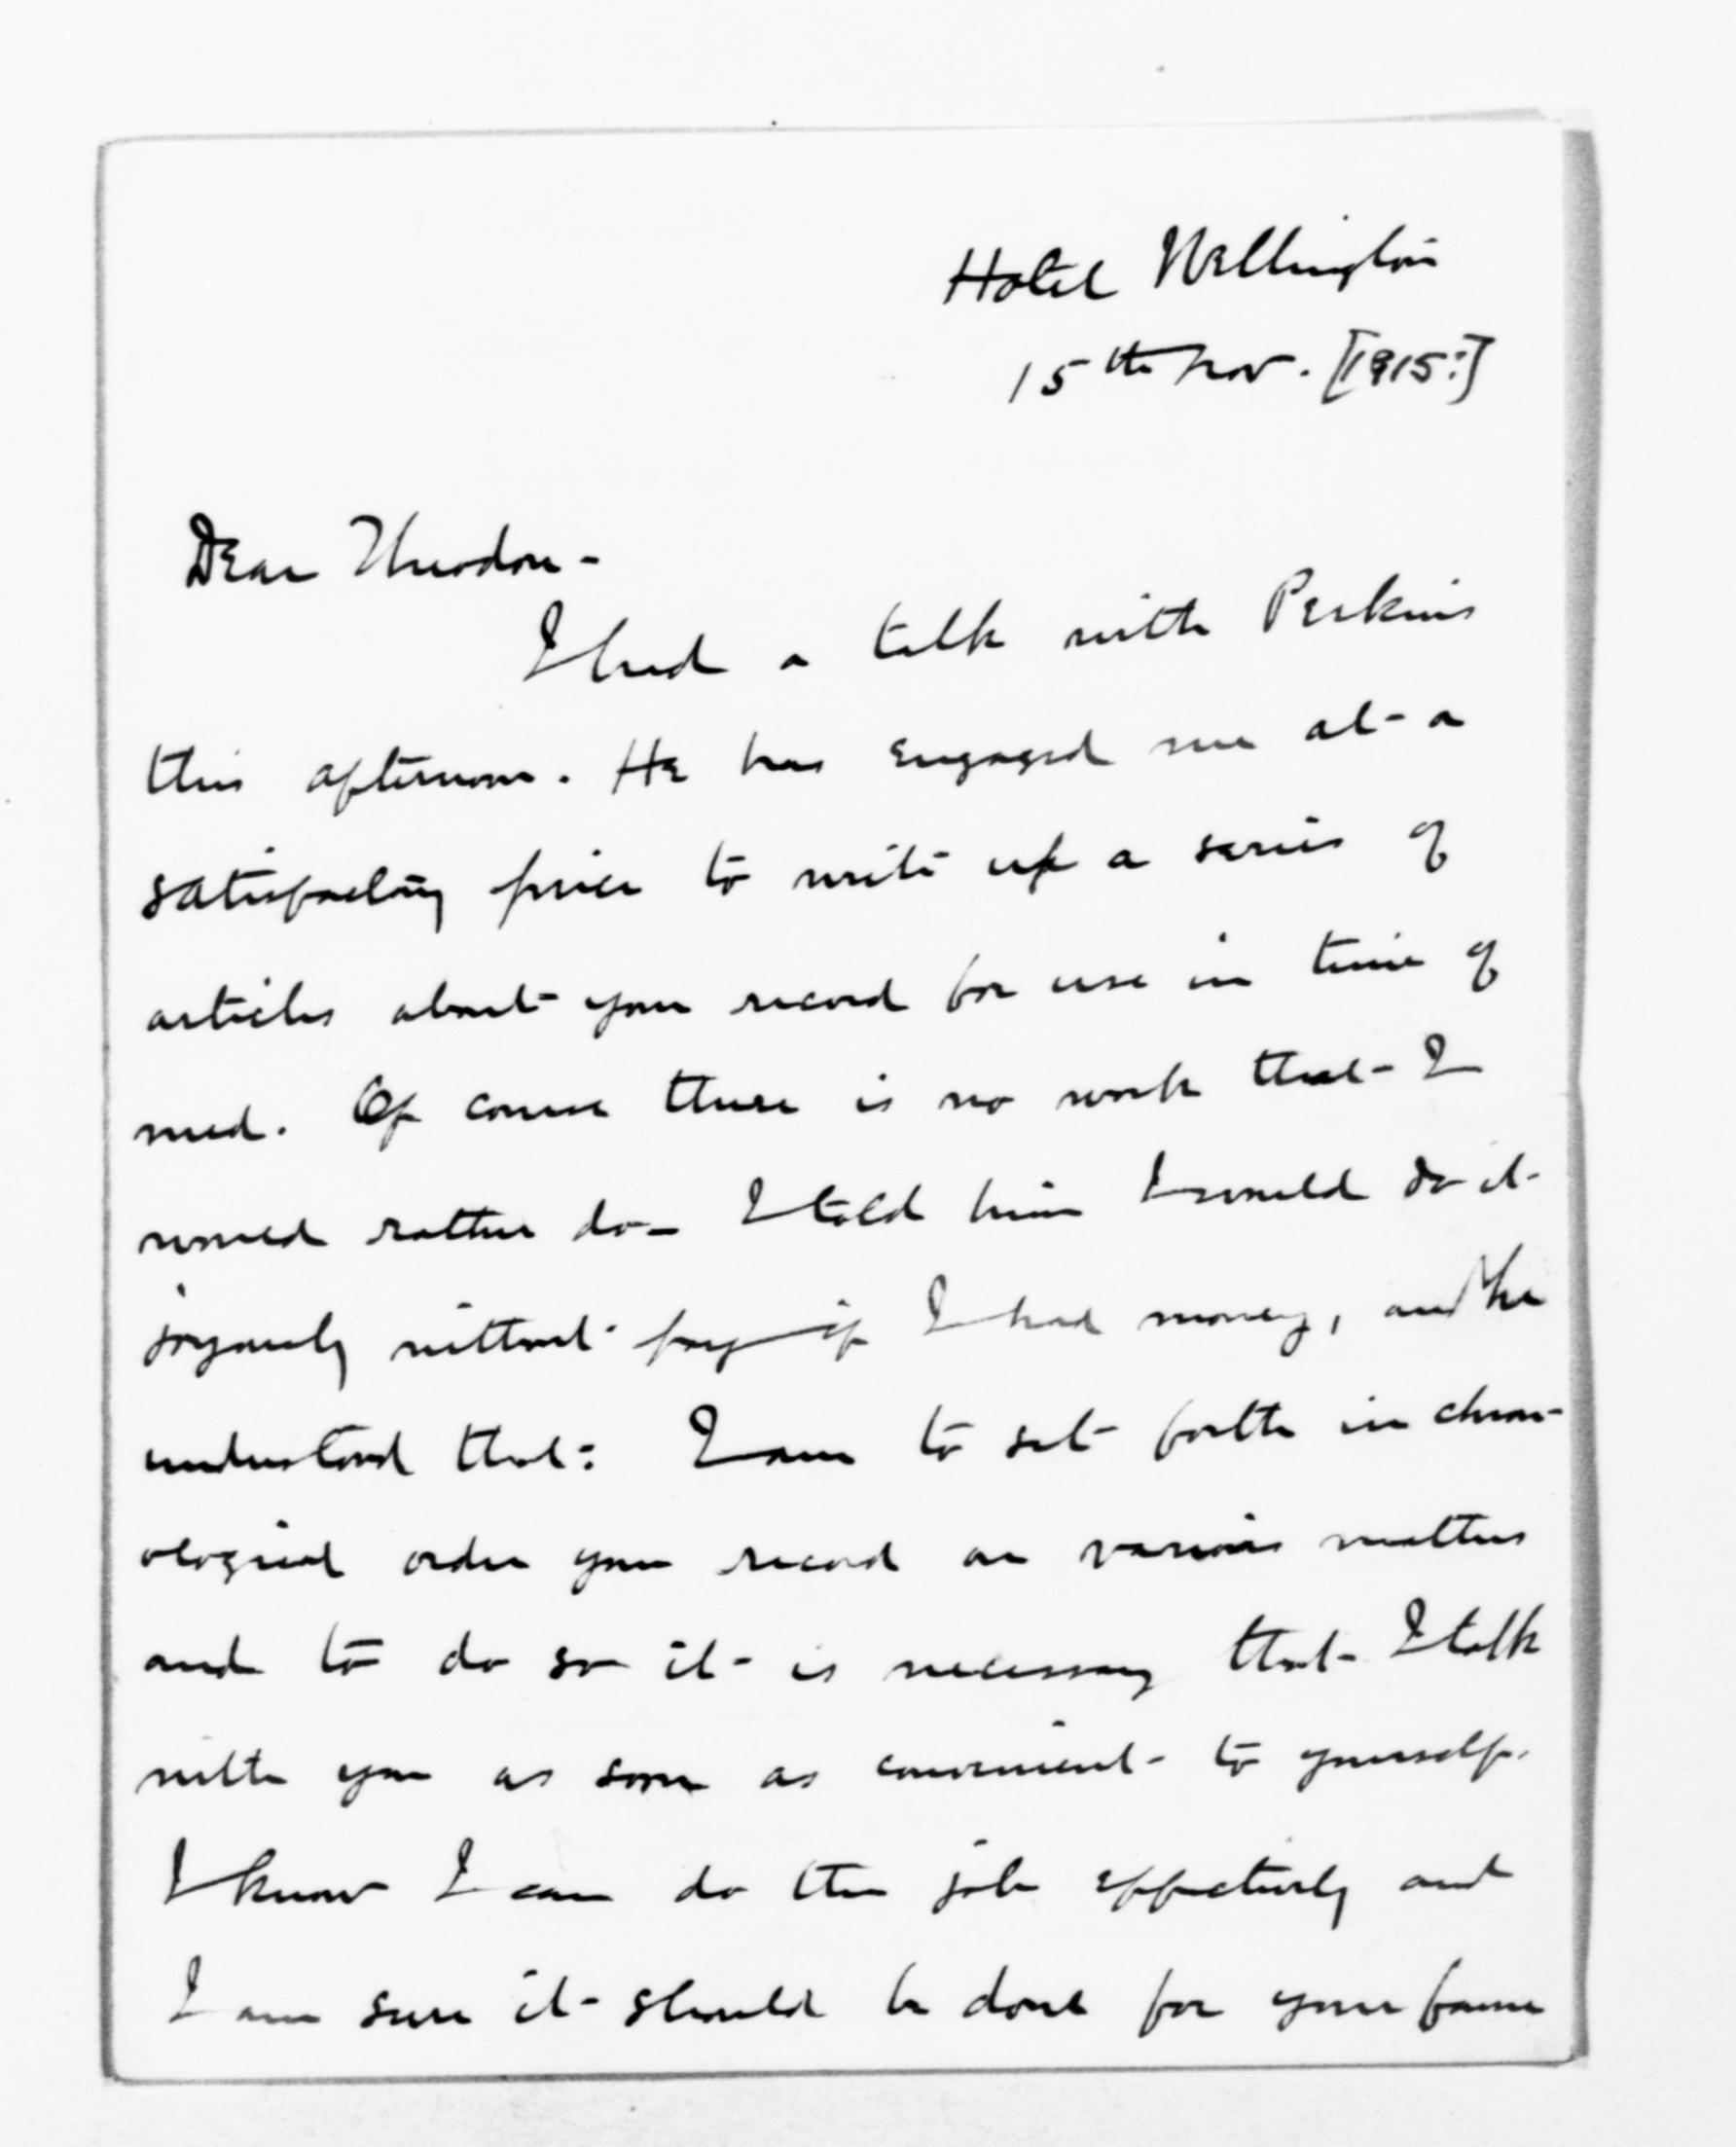 Hotel Wellington
15th Nov. [1915?]
Dear Theodore -
I had a talk with Perkins
this afternoon. He has engaged me at a
satisfactory price to write up a series of
articles about your record for use in time of
need. Of course there is no work that I
would rather do - I told him I would do it
joyously without pay if I had money, and he
understood that. I am to set forth in chron-
ological order your record on various matters
and to do so it is necessary that I talk
with you as soon as convenient to yourself.
I know I can do the job effectively and
I am sure it should be done for your fame